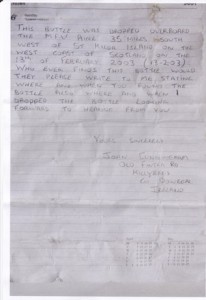 THIS BOTTLE WAS DROPPED OVERBOARD
THE M.F.V. 35 MILES NORTH
WEST OF ISLAND ON THE
WEST COAST OF SCOTLAND ON THE
13TH OF FEBRUARY 2003 (13-2-03)
WHO EVER FINDS THIS BOTTLE WOULD
THEY PLEASE WRITE TO ME STATING
WHERE AND WHEN YOU FOUND THE
BOTTLE AND WHERE AND WHEN I
DROPPED THE BOTTLE LOOKING
FORWARD TO HEARING FROM YOU
YOURS SINCERELY
JOHN
OLD
CO
IRELAND